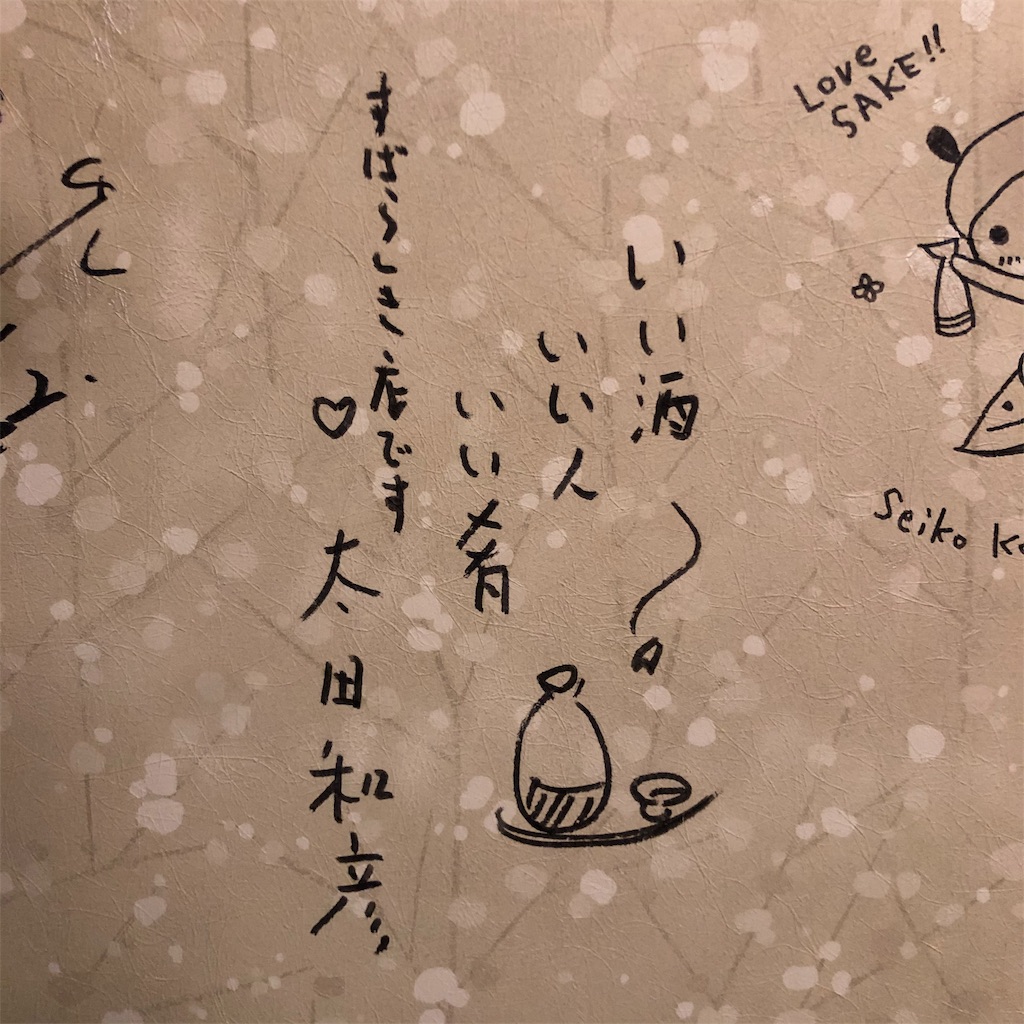 LOVE
SAKE!!
いい酒
いい人
いい肴
すばらしき店です
♡
太田和彦
Seiko